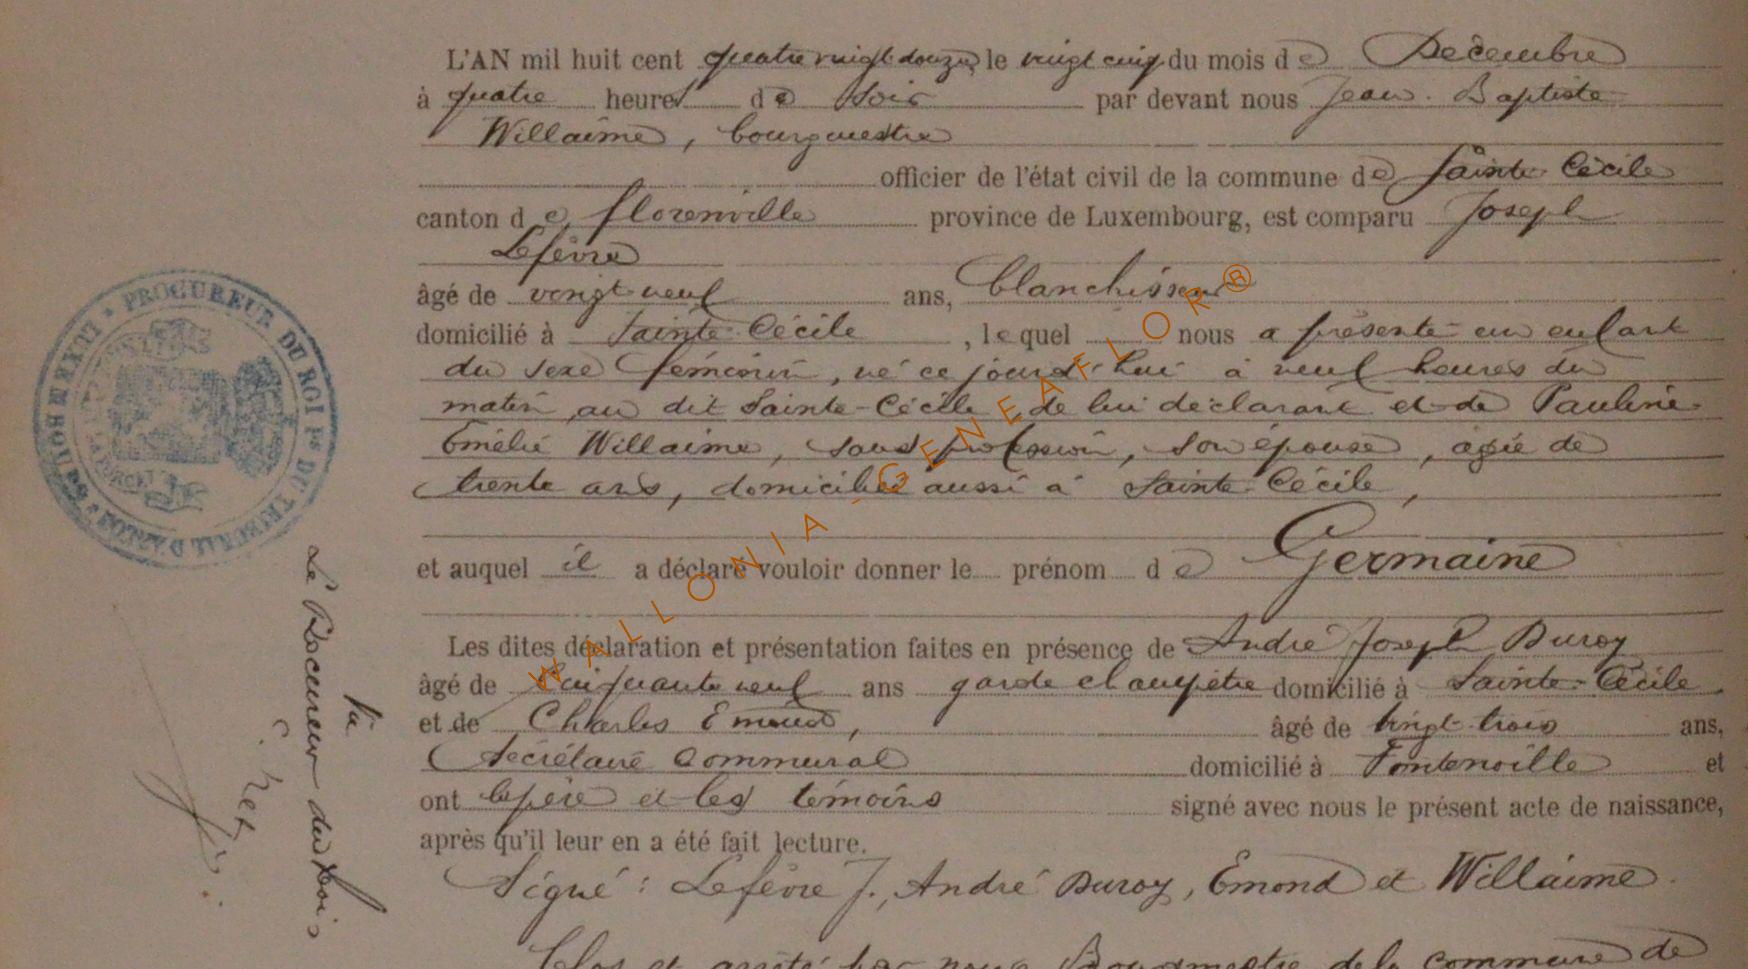 L'AN mil huit cent quatre vingt douze, le vingt cinq du mois de Décembre
à quatre heures de soir par devant nous Jean-Baptiste
Willaime, bourgmestre
officier de l'état civil de la commune de Sainte-Cécile
canton de Florenville province de Luxembourg, est comparu Joseph
Lefèvre
âgé de vingt neuf ans, blanchisseur
domicilié à Sainte-Cécile, lequel nous a présenté un enfant
du sexe féminin, né ce jourd'hui à neuf heures du
matin, au dit Sainte-Cécile de lui déclarant et de Pauline
Emélie Willaime, sans profession, son épouse, agée de
trente ans, domiciliée aussi à Sainte-Cécile,
et auquel il a déclaré vouloir donner le prénom de Germaine
Les dites déclaration et présentation faites en présence de André Joseph Duroy
âgé de Cinquante neuf ans garde champêtre domicilié à Sainte-Cécile
et de Charles Emond, âgé de vingt-trois ans,
Secrétaire communal domicilié à Fontenoille et
ont le père et les témoins signé avec nous le présent acte de naissance,
après qu'il leur en a été fait lecture.
Signé : Lefèvre J., André Duroy, Emond et Willaime.
Clos et arrêté par nous Bourgmestre de la commune de
PROCUREUR DU ROI PS DU TRIBUNAL D'ARLON
Vu
Le Procureur du Roi,
WALLONIA - GENEAFLOR®